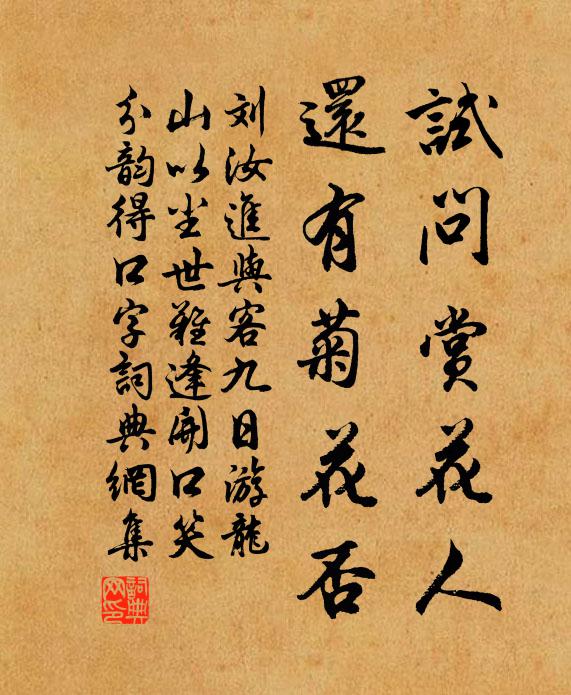 試問賞花人
還有菊花否
刘汝進與客九日游龍
山以尘世難逢開口笑
分韵得口字詞典網集
詞典
网印